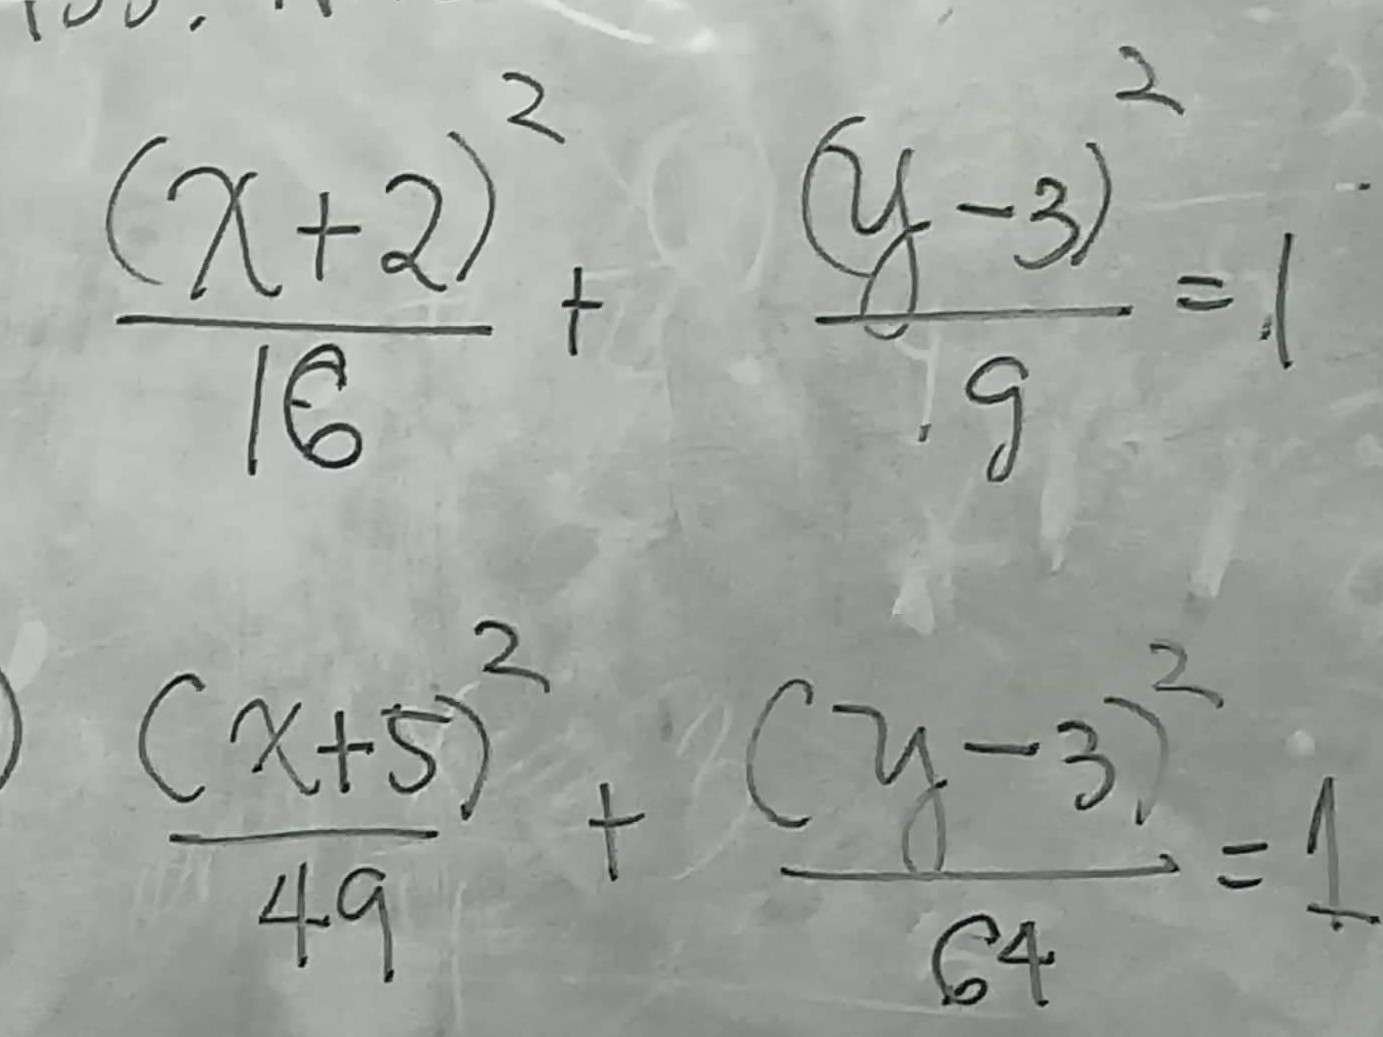 (x+2)²/16 + (y-3)²/9 = 1
) (x+5)²/49 + (y-3)²/64 = 1